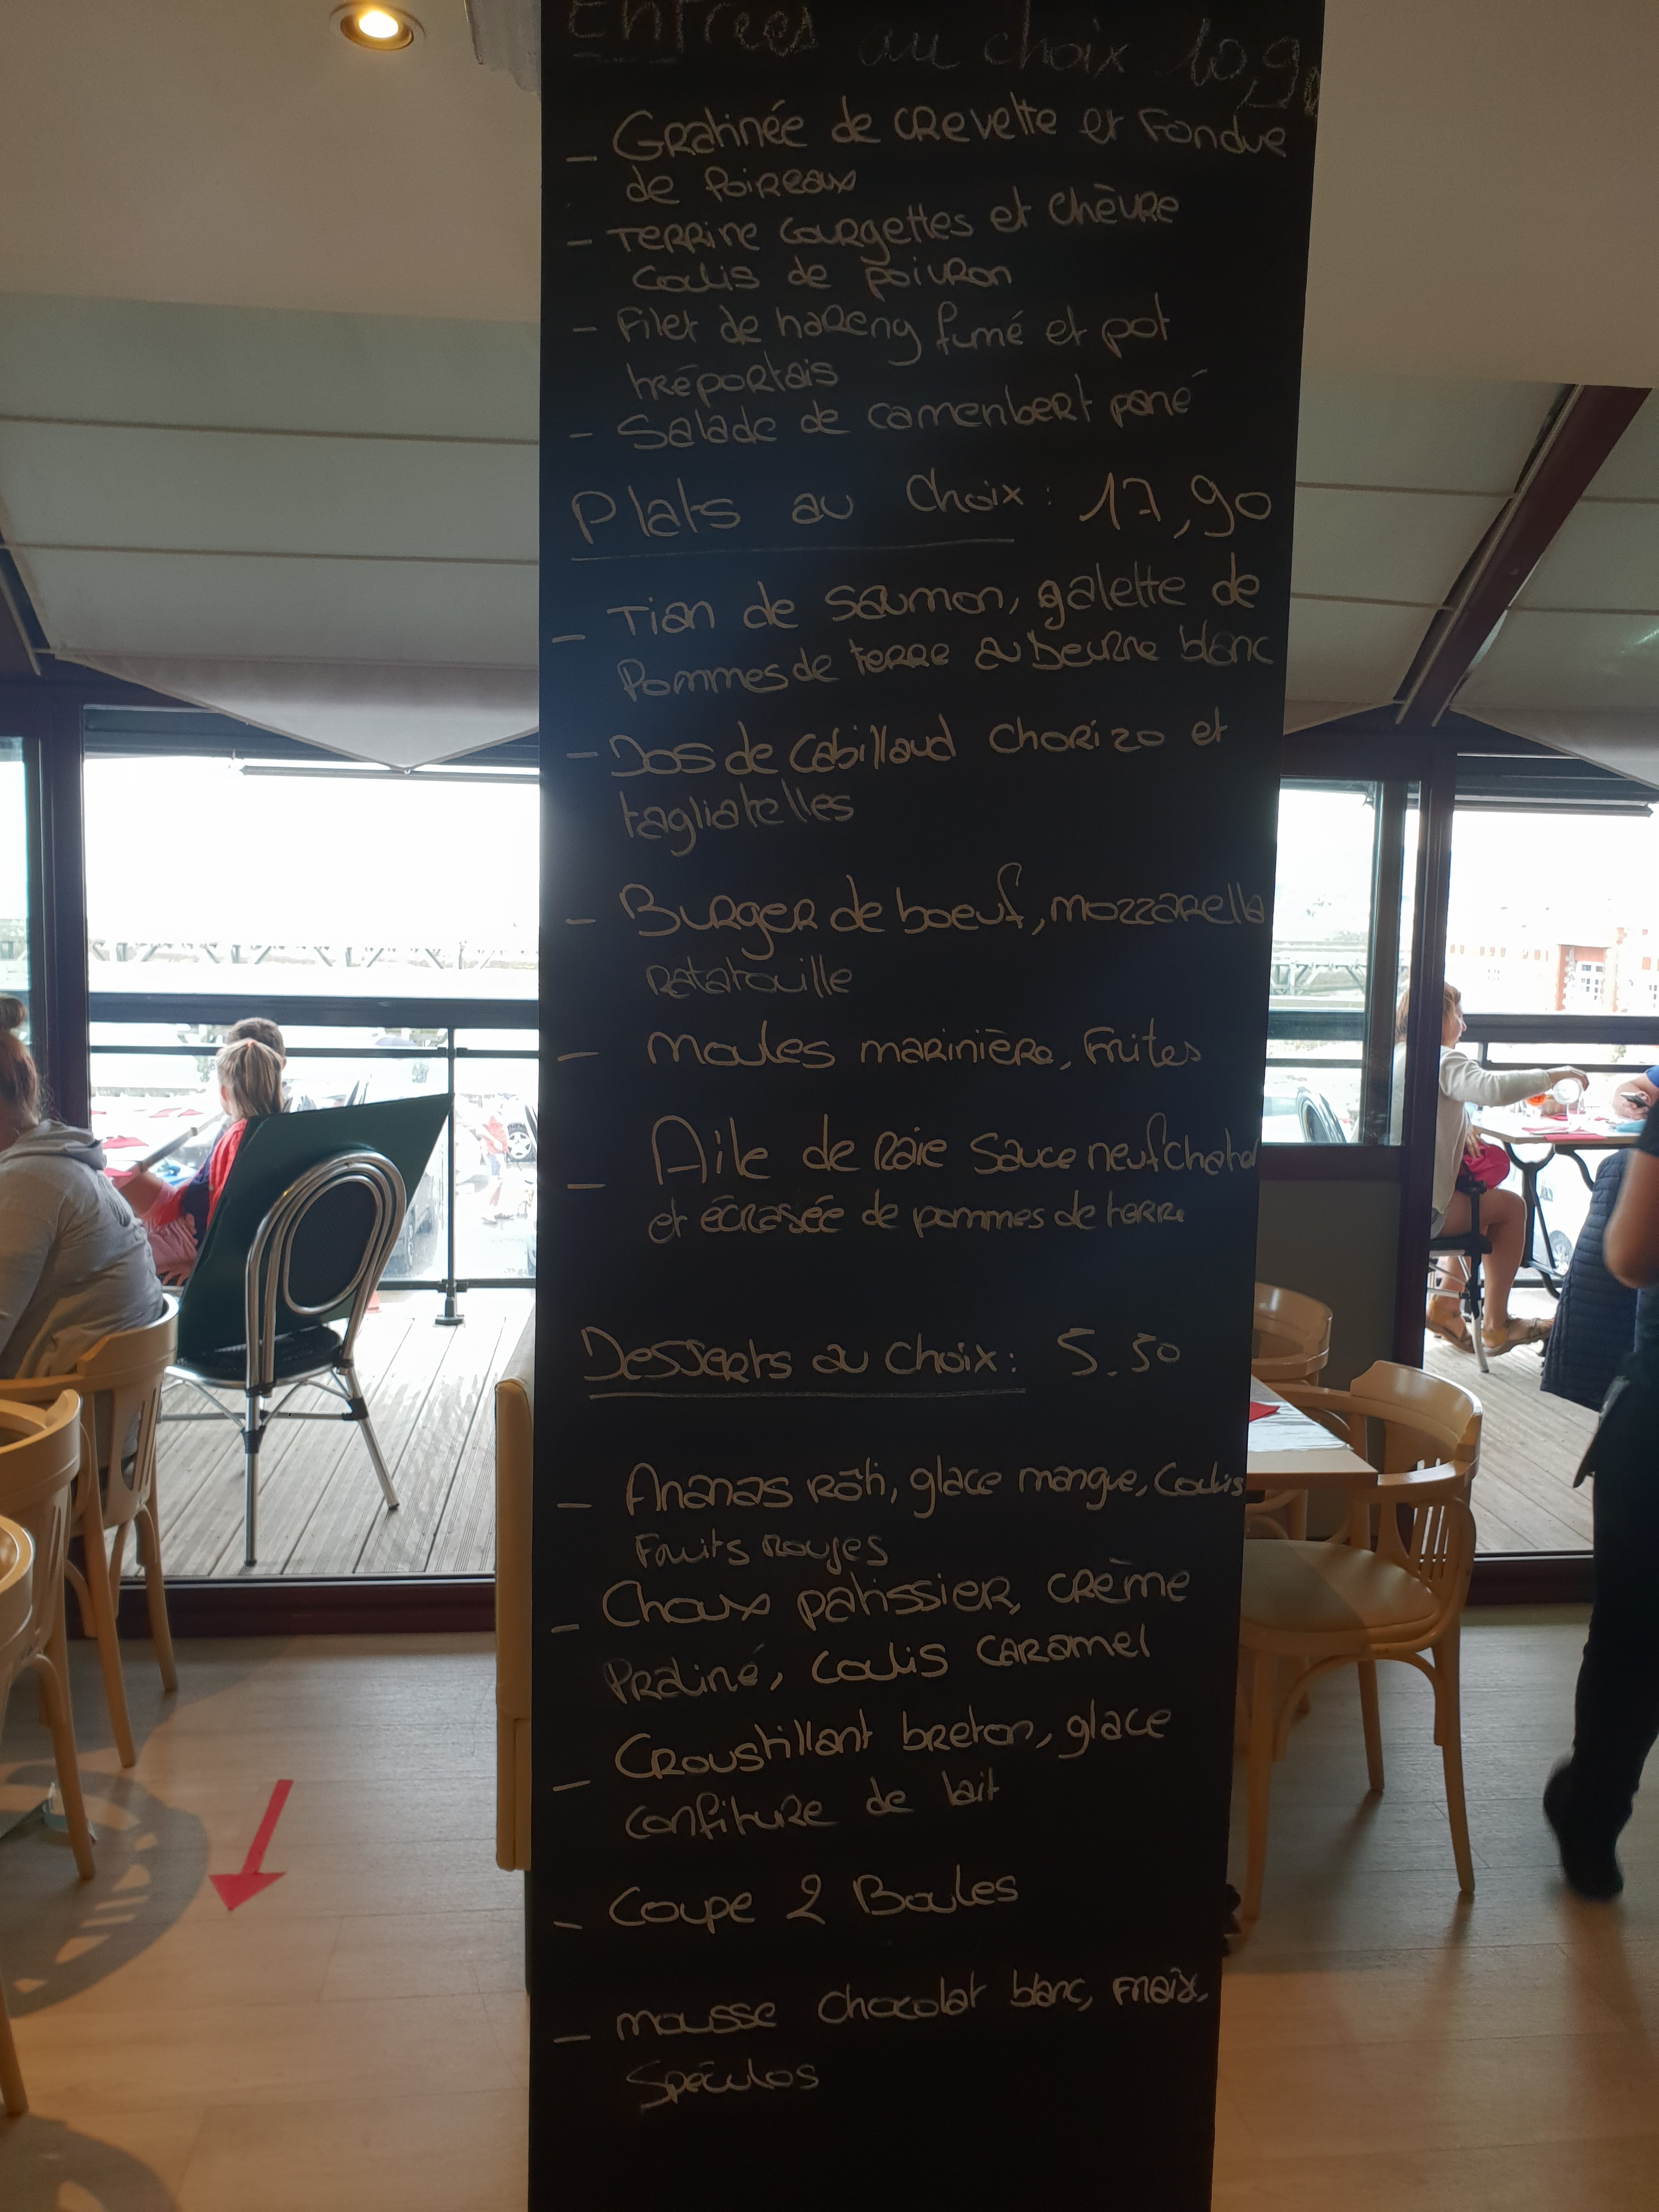 Entrées au choix 10,90
- Gratinée de crevette et Fondue
de Poireaux
- Terrine Courgettes et Chèvre
Coulis de poivron
- Filet de hareng fumé et pot
tréportais
- Salade de camembert pané
Plats au Choix : 17,90
- Tian de Saumon, galette de
Pommes de terre au beurre blanc
- Dos de Cabillaud chorizo et
tagliatelles
- Burger de boeuf, mozzarella
Ratatouille
- Moules marinière, Frites
- Aile de Raie Sauce neufchatel
et écrasée de pommes de terre
Desserts au Choix : 5.50
- Ananas rôti, glace mangue, Coulis
Fruits rouges
- Choux patissier, crème
Praliné, Coulis Caramel
- Croustillant breton, glace
Confiture de lait
- Coupe 2 Boules
- mousse Chocolat blanc, Fraix.
Spéculos